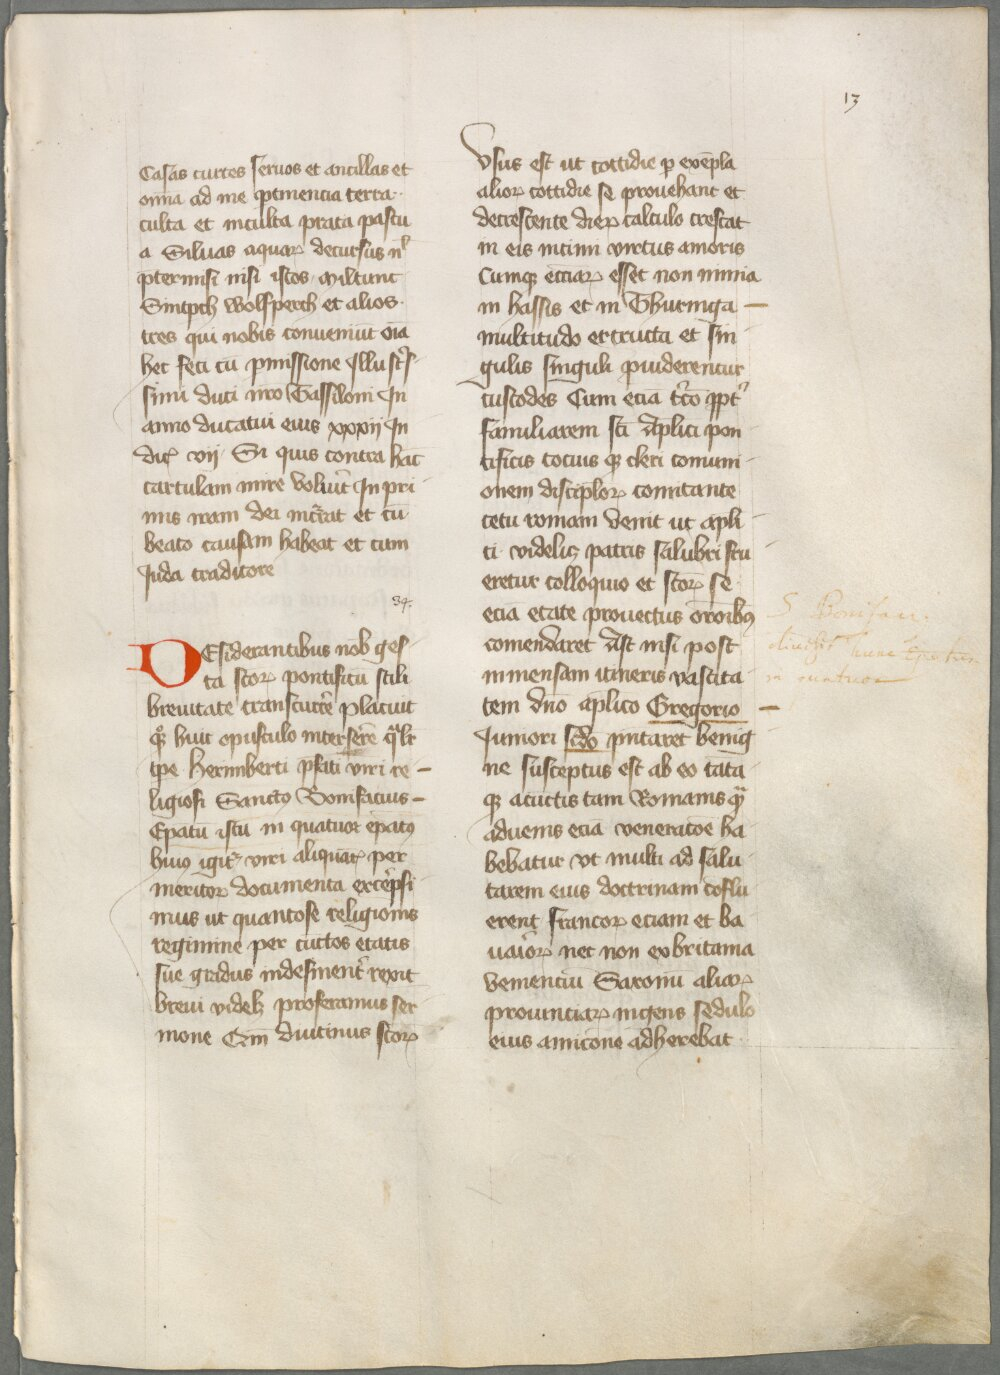 13
Casas curtes servos et ancillas et
om̄ia ad me ꝑtinencia terra
culta et inculta prata pascu
a Silvas aquaꝝ decursus nl̓
p̄termisi nisi istos Miltunc
Sintpch Wolfperch et alios
tres qui nobis conveniūt oīa
hec feci cū ꝑmissione Illustrͥs
simi duci nr̄o Tassiloni In
anno ducatui eius xxxij In
dicͭ vij Si quis contra hāc
cartulam inire voluͥt In pri
mis iram dei incͬrat et cū
beato causam habeat et cum
Iuda traditore
34.
DEsiderantibus nob̄ ges
ta scōꝝ pontificū stili
brevitate transcurre̓ placuit
qͦꝫ huic opusculo interse̓re qͣlr̓
tp̄e herimberti p̄fati viri re
ligiosi Sanctꝰ Bonifacius
Epatū istū in quatuor epatꝰ
huiꝰ igitͬ viri aliquātͬ per
meritoꝝ documenta excerpsi
mus ut quantose religionis
regimine per cūctos etatis
sue gradus indesinent̓ rexit
brevi videlꝫ proferamus ser
mone Cum̄ diutinus scōꝝ
Usus est ut cottidie ꝑ exēpla
alioꝝ cottidie se provehant et
decrescente dieꝝ calculo crescat
in eis intimi virtus amoris
Cumqꝫ ecc̄iaꝝ esset non minia
in hassis et in Thuringa
multitudo extructa et sin
gulis singuli p̄viderentur
custodes Cum eciā tc̓cō ꝓpt̓
familiarem sc̄i Ap̄lici pon
tificis tocius qꝫ cleri comuni
onem discip̄loꝝ comitante
cetu romam venit ut ap̄li
ci videlicꝫ patris salubri fru
eretur colloquio et sc̄oꝝ se
eciā etate provectus or̄onibꝰ
comendaret Ast nisi post
inmensam itineris vastita
tem dn̄o ap̄lico Gregorio
Iuniori scd̄o p̄ntaret benig
ne susceptus est ab eo tāta
qꝫ acūctis tam Romanis qͣ̄
advenis eciā veneratōe ha
bebatur vt multi ad salu
tarem eius doctrinam cōflu
erent francoꝝ eciam et ba
uaioꝝ nec non ex britania
veniencium Saxonū aliaꝝ
provinciaꝝ ingens sedulo
eius amicōne adherebat
S. Bonifaci.
hunc Epatum
in quatuor